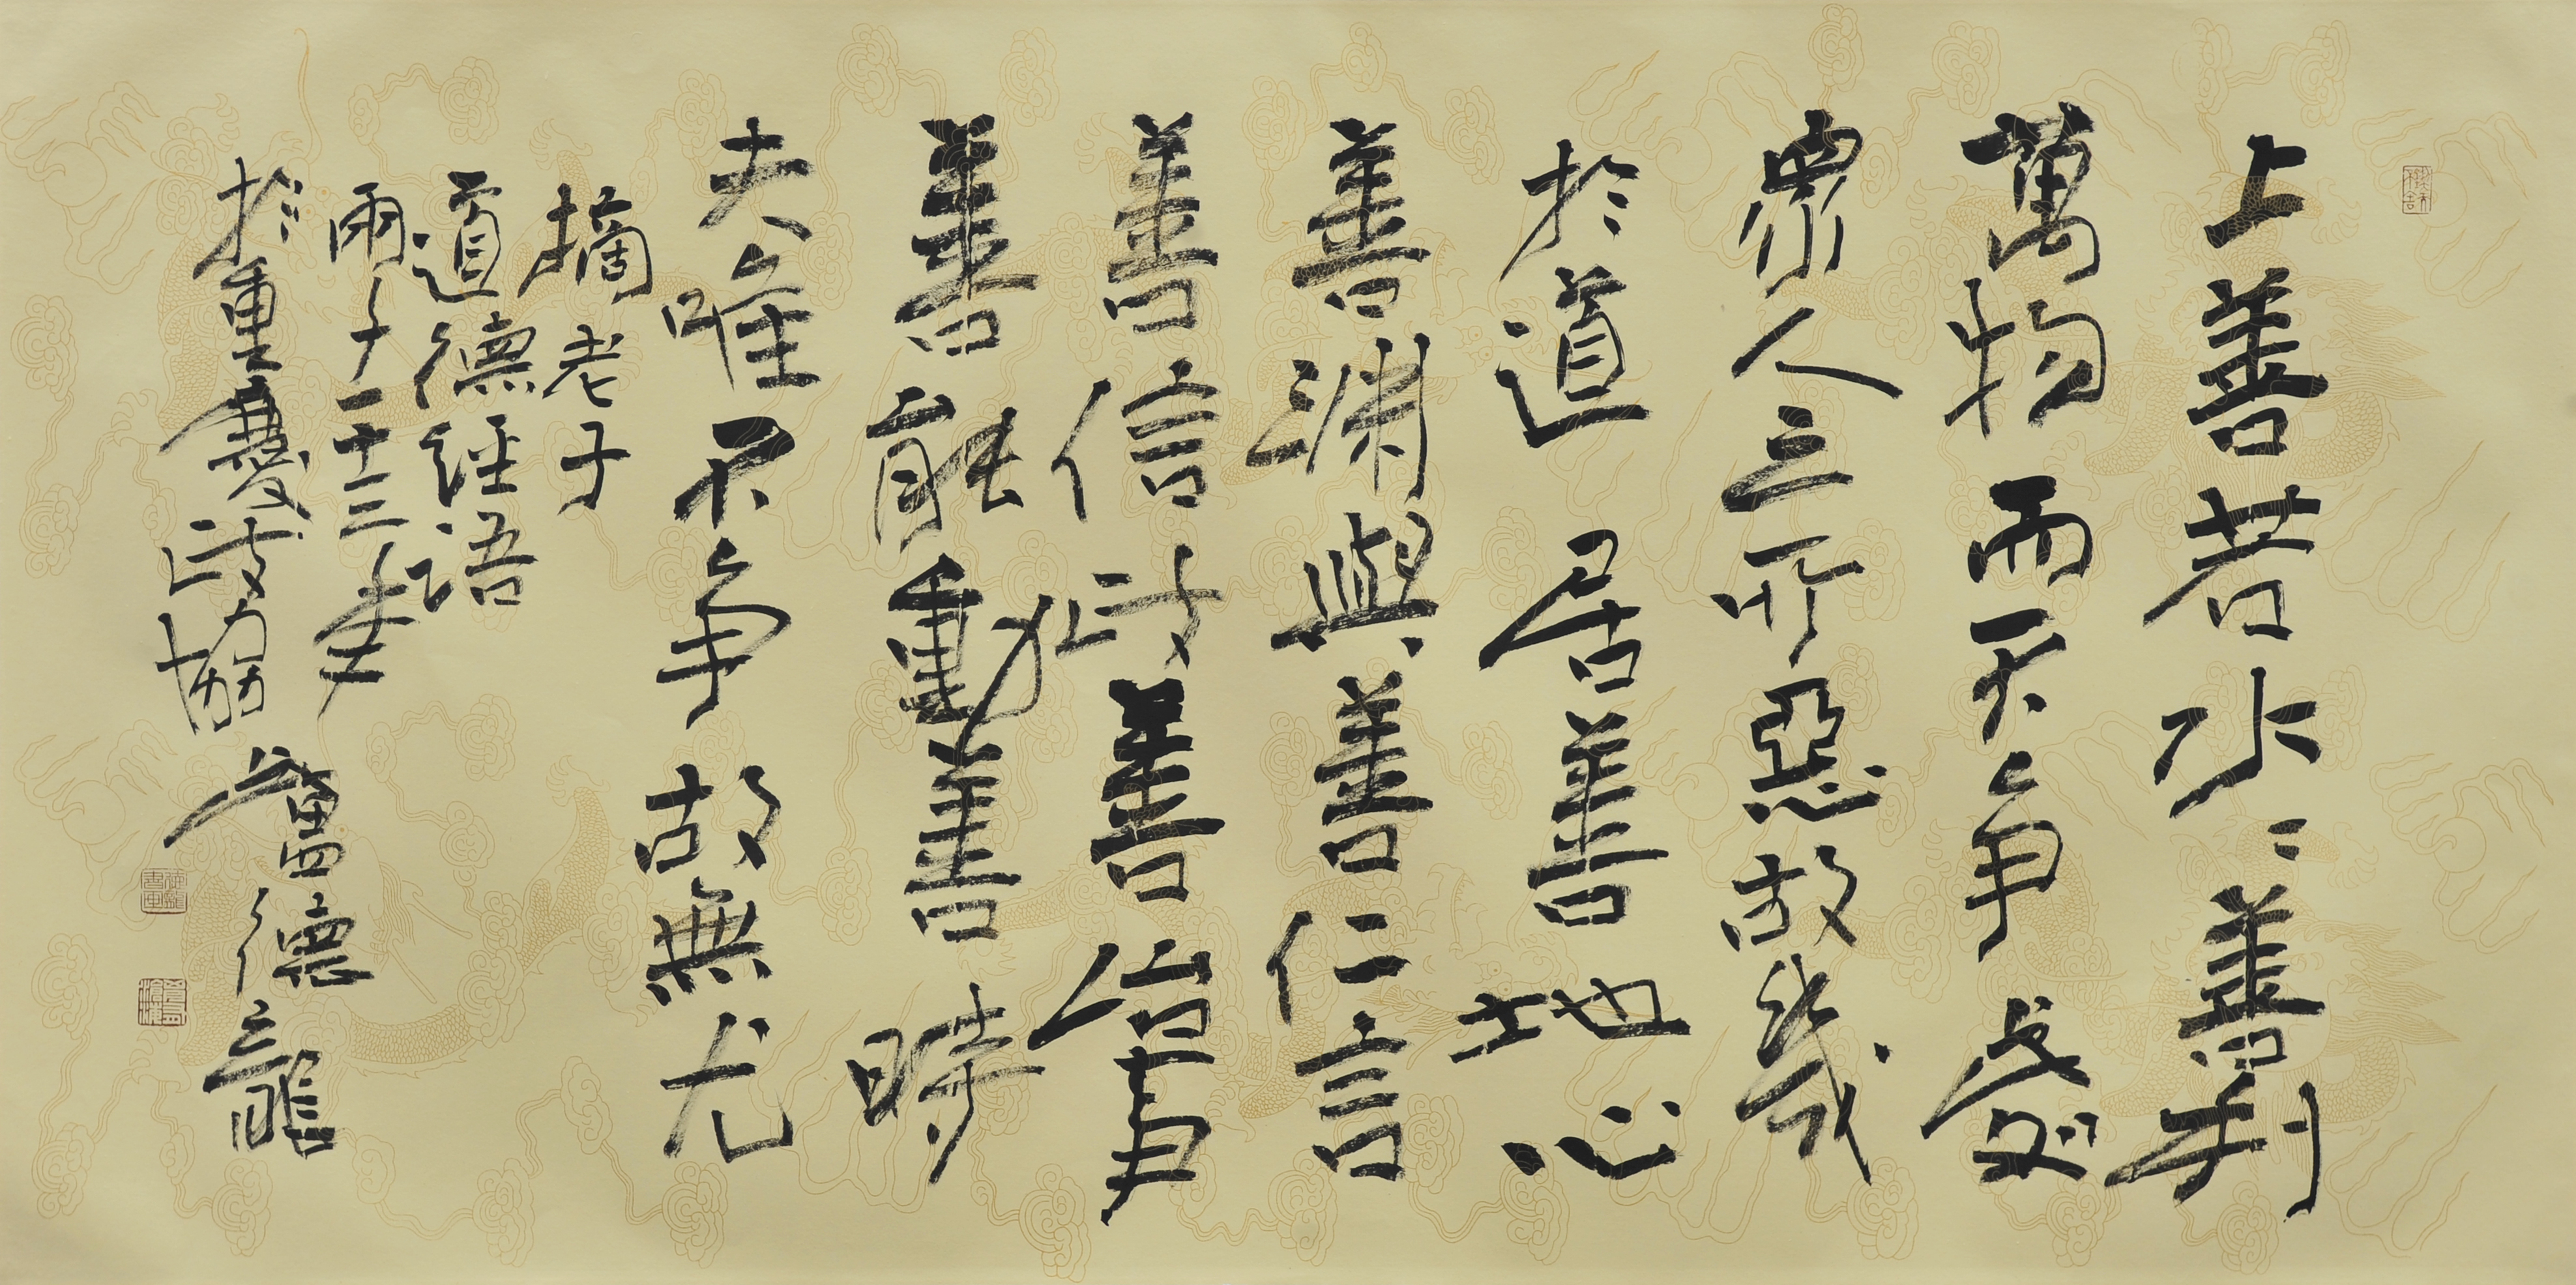 上善若水=善利
萬物而不争處
衆人之所惡故幾
於道居善地心
善渊與善仁信
善信政善治事
善能動善時
夫唯不争故無尤
摘老子
道德經语
於重慶
德龍